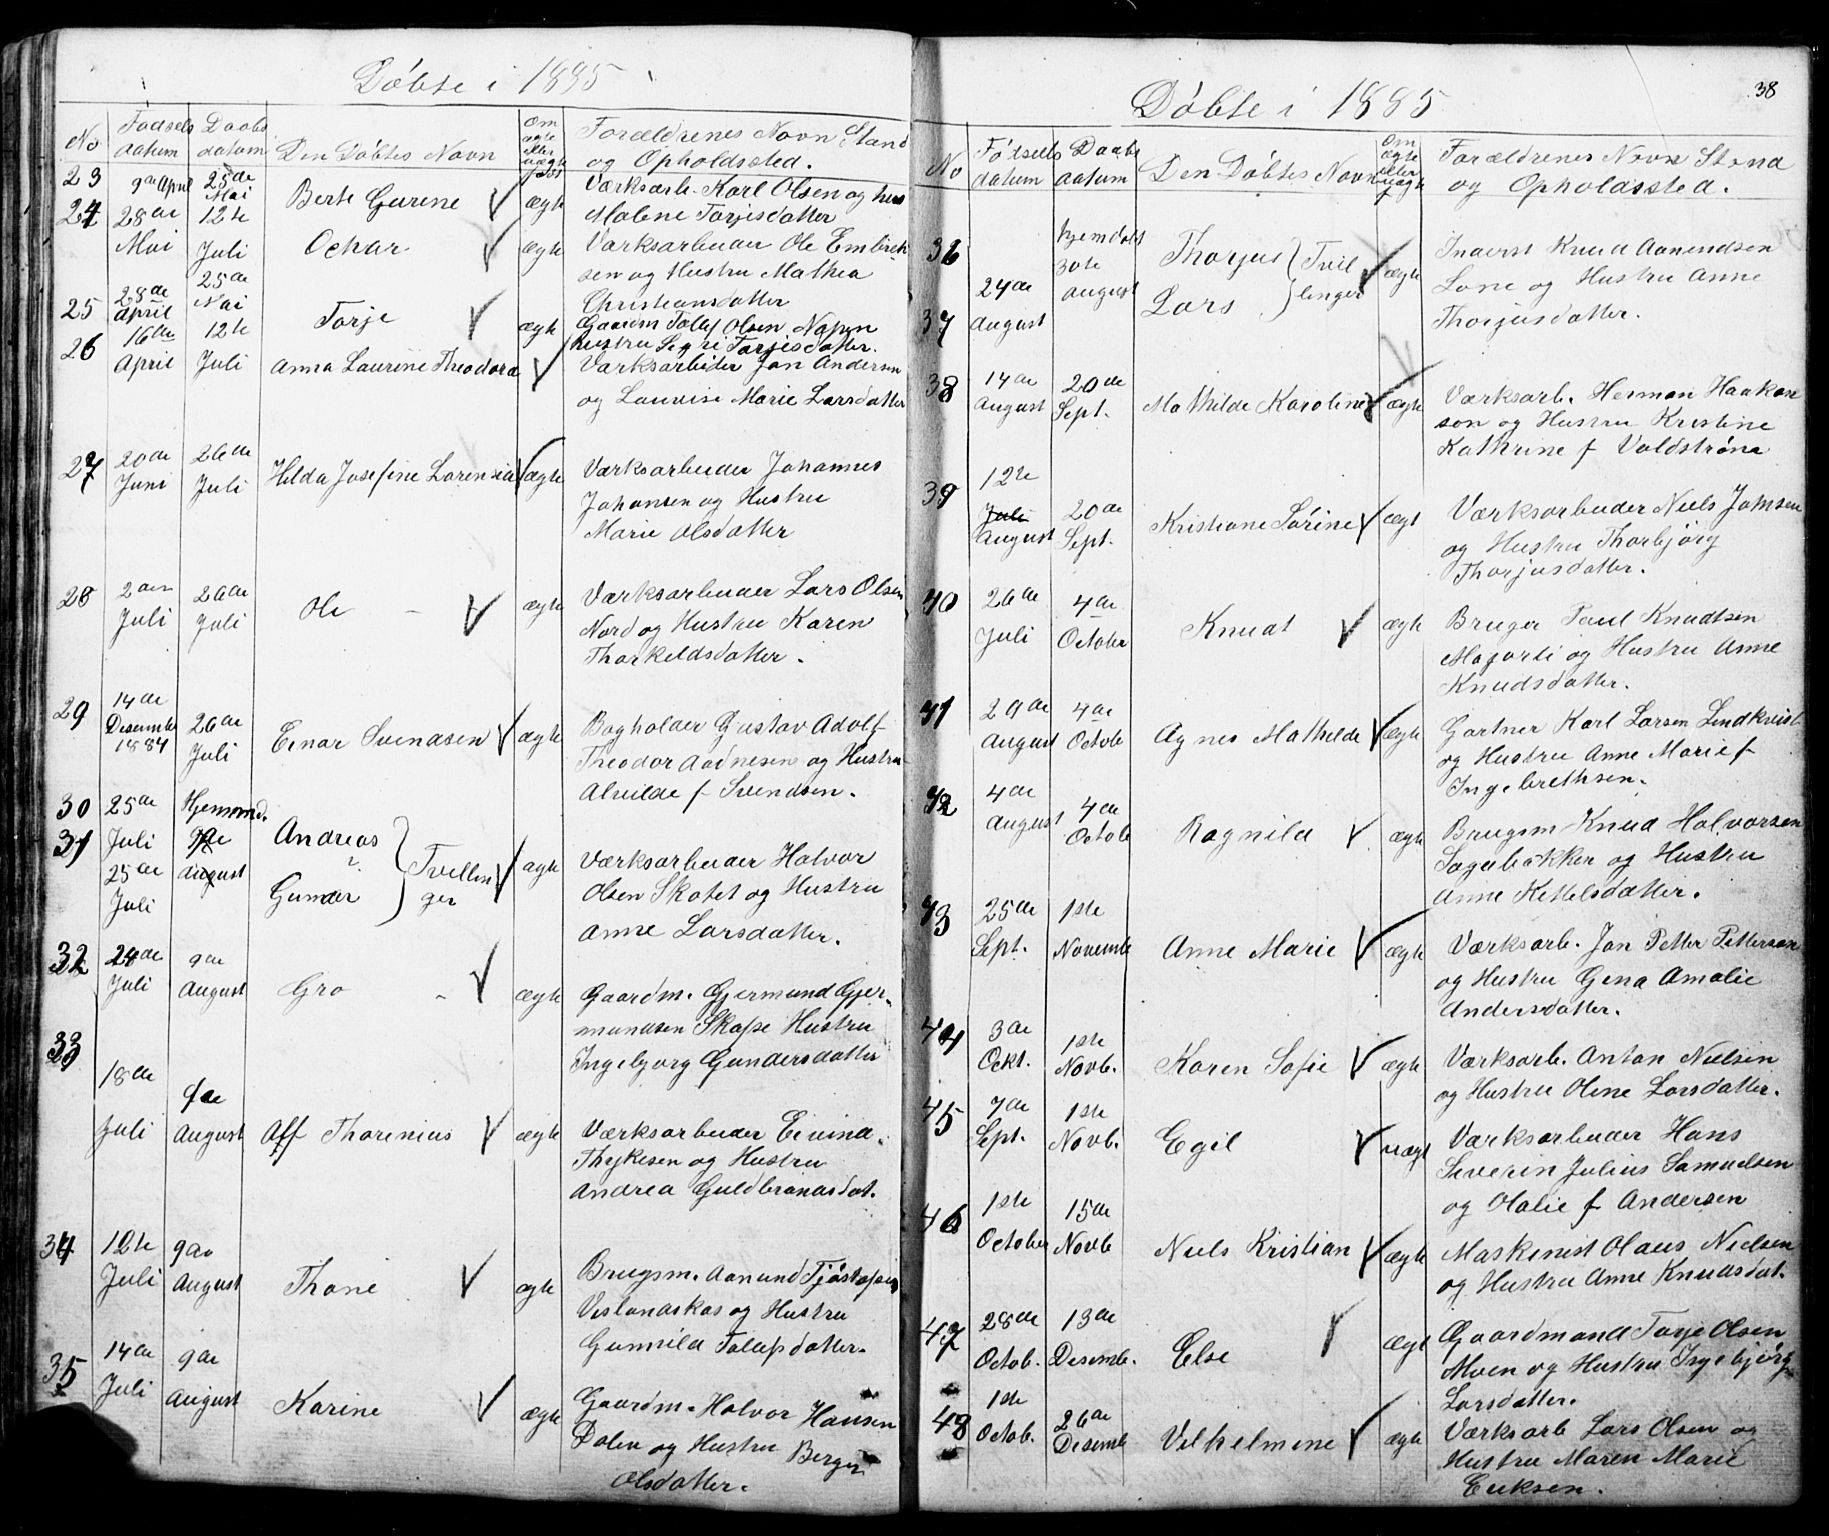 Döbte i 1885
No
Fødsels datum
Daabs datum
Den Döbtes Navn
Om ægte eller uægte
Forældrenes Navn Stand
og Opholdssted.
23 9de April 25de Mai Berte Gurine ægte Værksarb. Karl Olsen og hus
Malene Torjesdatter
24 28de Mai 12te Juli Ockar ægte Værksarbeider Ole Embrek-
sen og Hustru Mathea
Christiansdatter
25 28de April 25de Mai Torje ægte Gaardm Tollef Olsen
hustru Sigri Torjisdatter.
26 16de April 12te Juli Anna Laurine Theodora Værksarbeider Jan Andersen
og Lauvise Marie Larsdatter
27 20de Juni 26de Juli Hilda Josefine Lorensia ægte Værksarbeider Johannes
Johansen og Hustru
Marie Olsdatter
28 2den Juli 26de Juli Ole - ægte Værksarbeider Lars Olsen
Nord og Hustru Karen
Thorkeldsdatter.
29 14de Desember 1884 26de Juli Einar Svendsen ægte Bogholder Gustav Adolf
Theodor Aadnesen og Hustru
Alvilde f Svendsen.
30 25de Juli Hjemmed. Andreas
31 25de Juli 9de August Gunnar Tvillinger ægte Værksarbeider Halvor
Olsen Skatet og Hustru
Anne Larsdatter.
32 28de Juli 9de August Gro - ægte Gaardm. Gjermund Gjer-
mundsen Skape Hustru
Ingebjorg Gundersdatter
33 18de Juli 9de August Alf Thorenius ægte Værksarbeider Eivind
Thykesen og Hustru
Andrea Guldbrandsdat.
34 12te Juli 9de August Thone ægte Brugsm. Aanund
og Hustru
Gunnild Tollefsdatter.
35 14de Juli 9de August Karine ægte Gaardm. Halvor Hansen
Dalen og Hustru Berger
Olsdatter.
38
Döbte i 1885
No
Fødsels datum
Daabs datum
Den Döbtes Navn
Om ægte eller uægte
Forældrenes Navn Stand
og Opholdssted.
36 24de August hjemdøbt 30te August Thorjus Tvillinger ægte Inderst Knud Aanundsen
37 Lars Lone og Hustru Anne
Thorjusdatter.
38 14de August 20de Sept. Mathilde Karoline ægte Værksarb. Herman Haakon
son og Hustru Kristine
Kathrine f Valdstrøm
39 12te Juli August 20de Sept. Kristiane Sørine ægt Værksarbeider Niels
og Hustru Thorbjörg
Thorjusdatter.
40 26de Juli 4de October Knudt ægte Bruger Paul Knudtsen
og Hustru Anne
Knudsdatter.
41 29de August 4de Octob Agnes Mathilde ægte Gartner Karl Larsen Lindkvist
og Hustru Anne Marie f
Ingebrethsen.
42 4de August 4de Octob Ragnild ægte Brugsm Knud Halvorsen
Sagebakken og Hustru
Anne Kittelsdatter.
43 25de Sept. 1ste Novemb Anne Marie ægte Værksarb. Jan Petter Petterson
og Hustru Gena Amalie
Andersdatter.
44 3de Ockt. 1ste Novb. Karen Sofie ægte Værksarb. Anton Nielsen
og Hustru Oline Larsdatter.
45 7de Sept. 1ste Novb. Egil uægt Værksarbeider Hans
Severin Julius Samuelsen
og Halie f Andersen
46 1ste October 15de Novb Niels Kristian ægte Maskinist Olaus Nielsen
og Hustru Anne Knudsdat.
47 28de Octob. 13de Desemb. Else ægt Gaardmand Torje Olsen
Moen og Hustru Ingebjörg
Larsdatter.
48 1ste Octob. 26de Desemb Vilhelmine ægte Værksarb Lars Olsen og
Hustru Maren Marie
Eriksen.